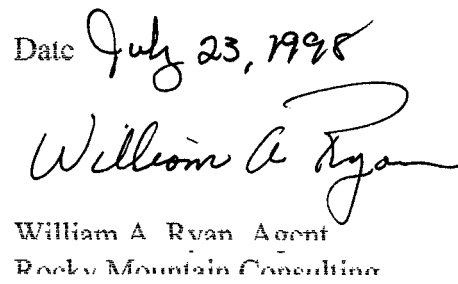 Date July 23, 1998
William A Ryan
William A. Ryan Agent
Rocky Mountain Consulting